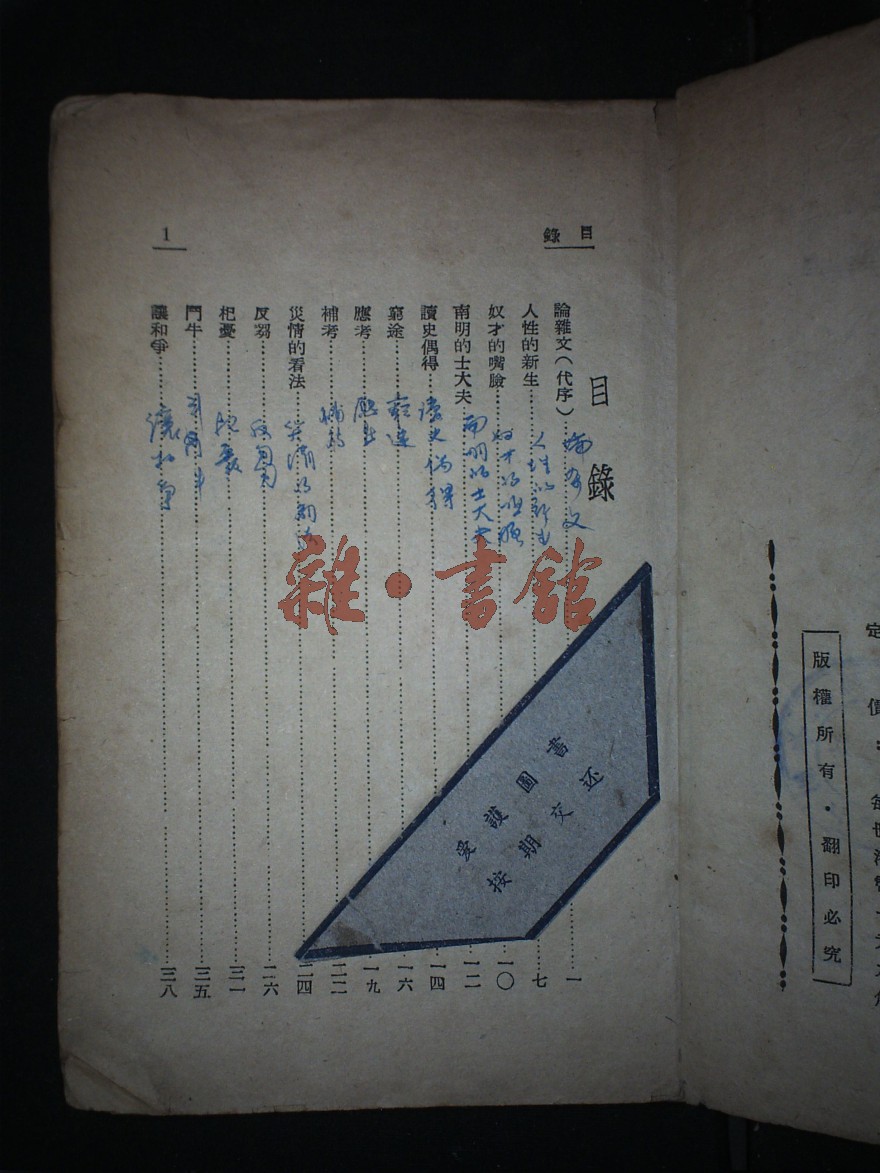 目錄
1
目錄
論雜文（代序）⋯⋯一
人性的新生⋯⋯七
奴才的嘴臉⋯⋯一〇
南明的士大夫⋯⋯一二
讀史偶得⋯⋯一四
窮途⋯⋯一六
應考⋯⋯一九
補考⋯⋯二二
災情的看法⋯⋯二四
反芻⋯⋯二六
杞憂⋯⋯三一
鬥牛⋯⋯三五
讓和爭⋯⋯三八
人性的新生
南明的士大夫
讀史偶得
窮途
補考
杞憂
讓和爭
雜·書館
愛護圖書
按期交还
版權所有·翻印必究
定價：每冊